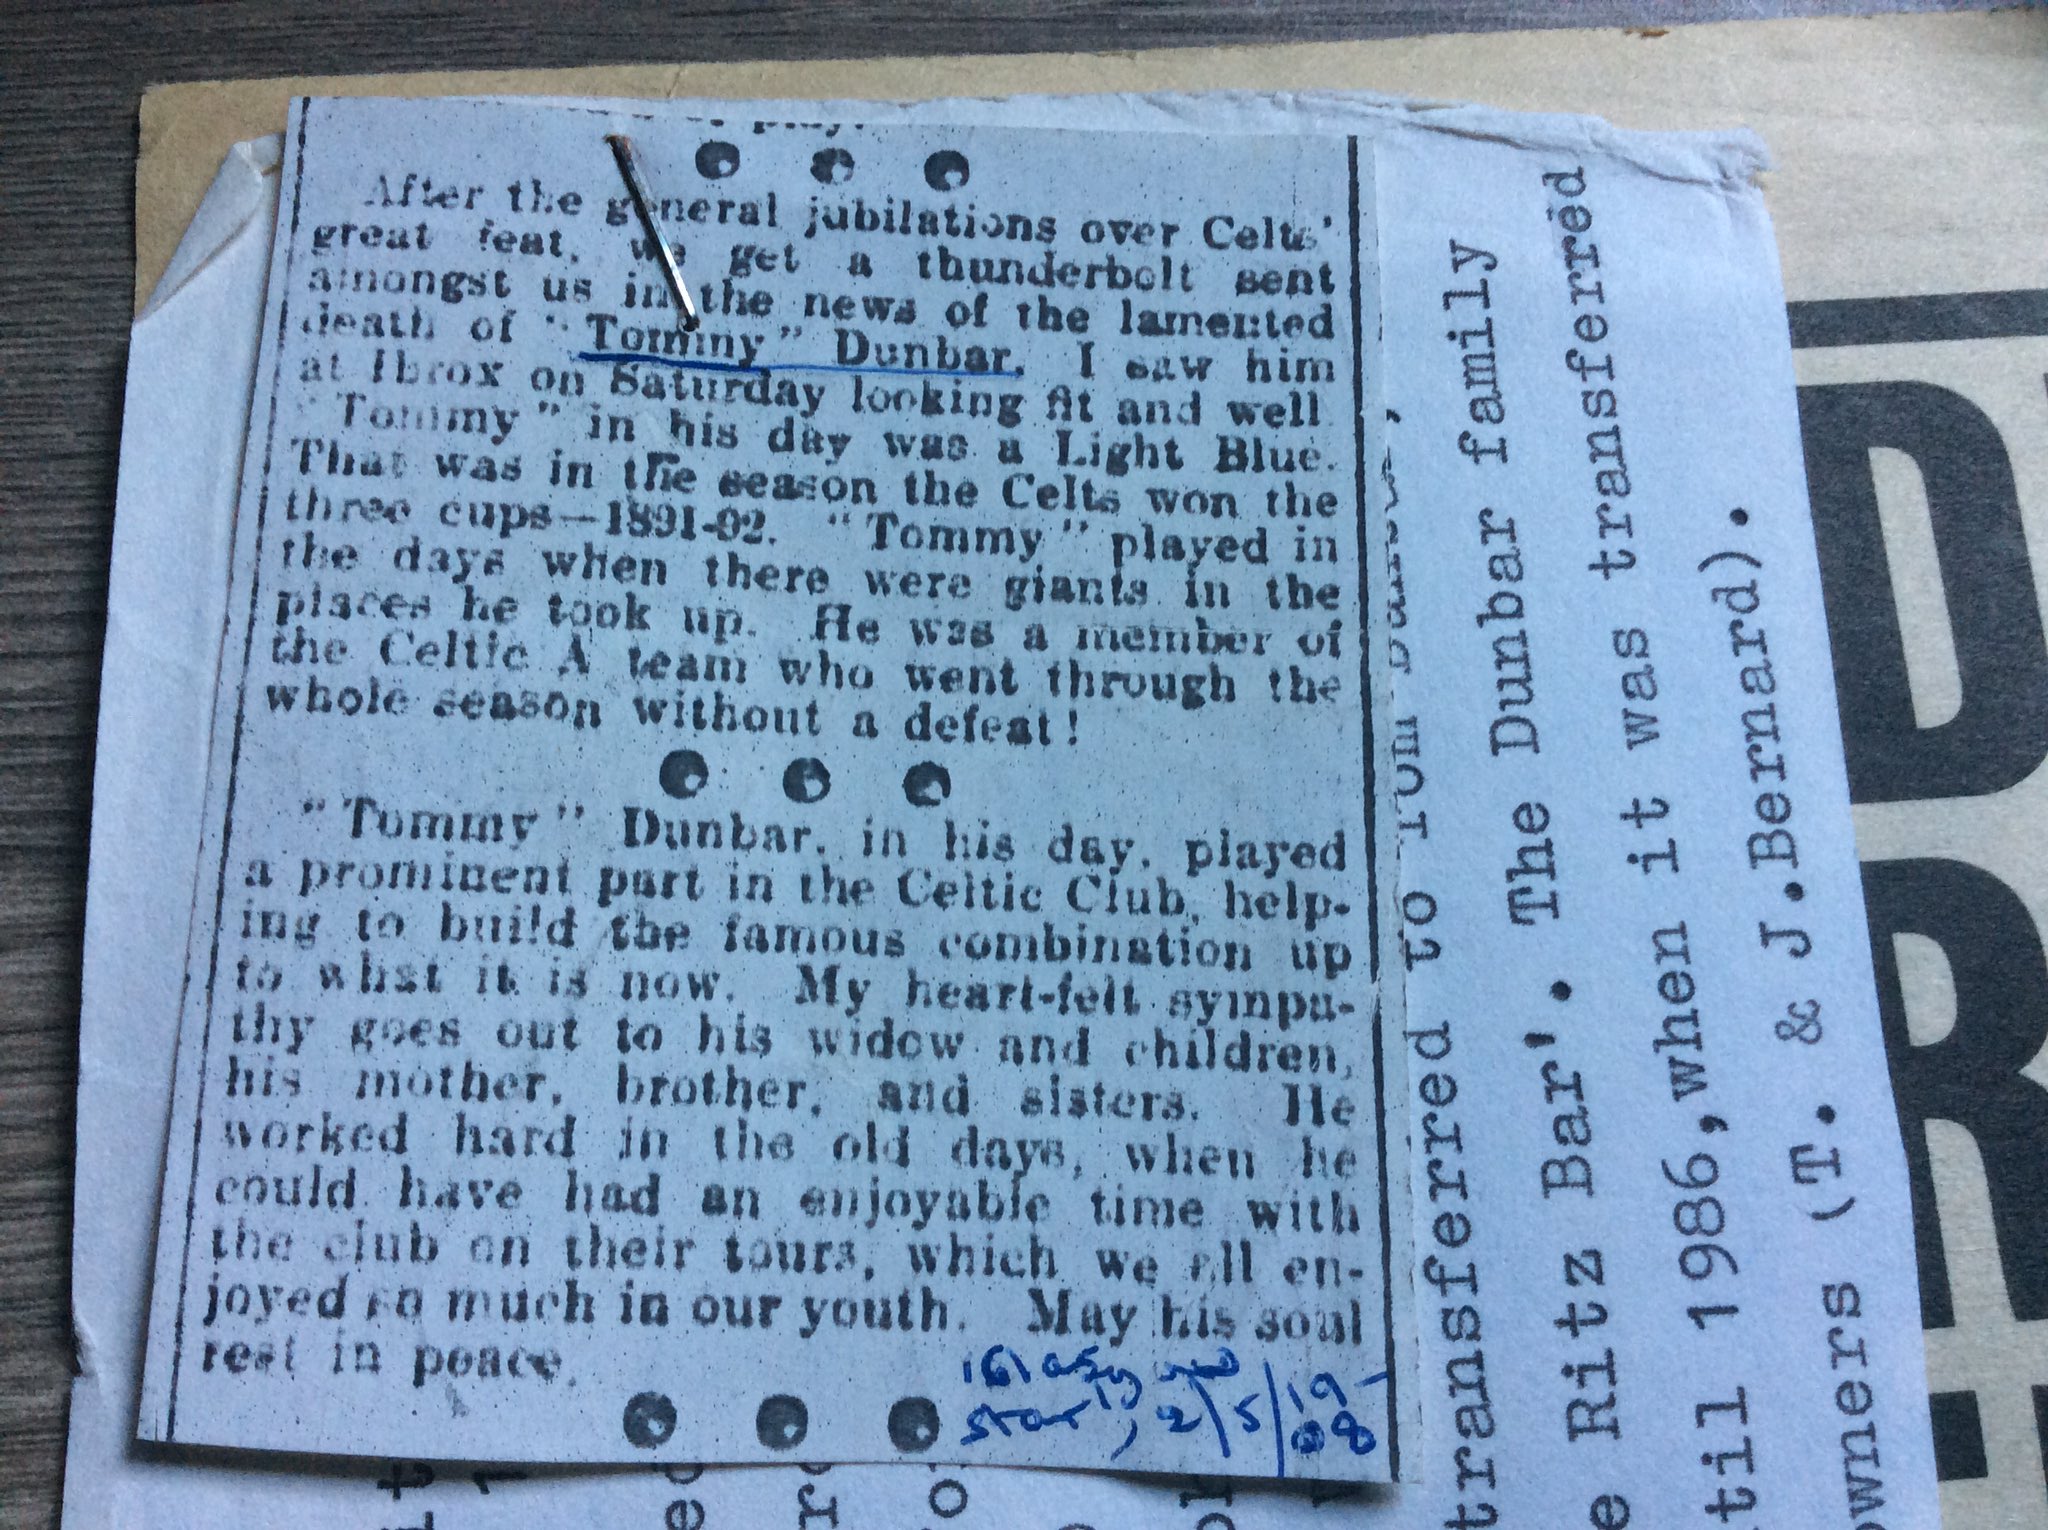 of play.
After the general jubilations over Celts'
great feat, we get a thunderbolt sent
amongst us in the news of the lamented
death of "Tommy" Dunbar. I saw him
at Ibrox on Saturday looking fit and well
"Tommy" in his day was a Light Blue.
That was in the season the Celts won the
three cups—1891-92. "Tommy" played in
the days when there were giants in the
places he took up. He was a member of
the Celtic A team who went through the
whole season without a defeat!
"Tommy" Dunbar, in his day, played
a prominent part in the Celtic Club, help-
ing to build the famous combination up
to what it is now. My heart-felt sympa-
thy goes out to his widow and children,
his mother, brother, and sisters. He
worked hard in the old days, when he
could have had an enjoyable time with
the club on their tours, which we all en-
joyed so much in our youth. May his soul
rest in peace.
Star, 2/5/19-
08
transferred to
Ritz Bar'. The Dunbar family
til 1986,when it was transferred
owners (T. & J.Bernard).
D
R